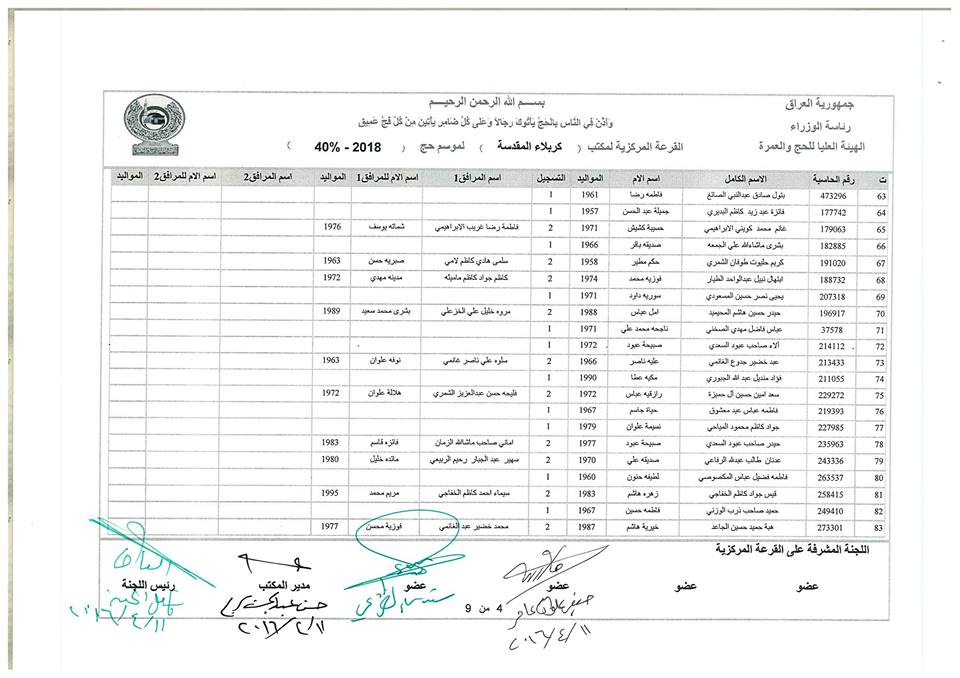 جمهورية العراق
رئاسة الوزراء
الهيئة العليا للحج والعمرة
بسم الله الرحمن الرحيم
وَأَذِّن فِي النَّاسِ بِالحَجِّ يَأتُوكَ رِجَالاً وَعَلَى كُلِّ ضَامِرٍ يَأتِينَ مِن كُلِّ فَجٍّ عَمِيقٍ
القرعة المركزية لمكتب ( كربلاء المقدسة ) لموسم حج ( 2018 - 40% )
ت رقم الحاسبة الاسم الكامل اسم الام المواليد التسجيل اسم المرافق1 اسم الام للمرافق1 المواليد اسم المرافق2 اسم الام للمرافق2 المواليد
63 473296 بتول صادق عبدالنبي الصائغ فاطمه رضا 1961 1
64 177742 فائزة عبد زيد كاظم البديري جميلة عبد الحسن 1957 1
65 179063 غانم محمد كويني الابراهيمي حسيبة كشيش 1971 2 فاطمة رضا غريب الابراهيمي شمائه يوسف 1976
66 182885 بشرى ماشاءالله علي الجمعه صديقه باقر 1966 1
67 191020 كريم حليوت طوفان الشمري حكم مطير 1958 2 سلمى هادي كاظم لامي صبريه حسن 1963
68 188732 ابتهال نبيل عبدالواحد الطيار فوزيه محمد 1974 2 كاظم جواد كاظم ماميثه مدينه مهدي 1972
69 207318 يحيى نصر حسين المسعودي سوريه داود 1971 1
70 196917 حيدر حسين هاشم المحيميد امل عباس 1988 2 مروه خليل علي الخزعلي بشرى محمد سعيد 1989
71 37578 عباس فاضل مهدي السخني ناجحه محمد علي 1971 1
72 214112 آلاء صاحب عبود السعدي صبيحة عبود 1972 1
73 213433 عبد خضير جدوع الغانمي عليه ناصر 1966 2 سلوه علي ناصر غانمي نوفه علوان 1963
74 211055 فؤاد منديل عبد الله الجبوري مكيه عطا 1990 1
75 229272 سعد امين حسين آل حميزة رازقيه عباس 1972 2 فليحه حسن عبدالعزيز الشمري هلالة علوان 1972
76 219393 فاطمه عباس عبد معشوق حياة جاسم 1967 1
77 227985 جواد كاظم محمود المياحي نسيمة علوان 1979 1
78 235963 حيدر صاحب عبود السعدي صبيحة عبود 1977 2 اماني صاحب ماشاالله الزمان فائزه قاسم 1983
79 243336 عدنان طالب عبدالله الرفاعي صديقه علي 1970 2 سهير عبد الجبار رحيم الربيعي مائده خليل 1980
80 263537 فاطمه فضيل عباس المكصوصي لطيفه حنون 1960 1
81 258415 قيس جواد كاظم الخفاجي زهره هاشم 1983 2 سيماء احمد كاظم الخفاجي مريم محمد 1995
82 249410 حميد صاحب ذرب الوزني فاطمه حسين 1967 1
83 273301 هبة حميد حسين الجاعد خيرية هاشم 1987 2 محمد خضير عبد الغانمي فوزية محسن 1977
اللجنة المشرفة على القرعة المركزية
عضو عضو عضو عضو مدير المكتب رئيس اللجنة
4 من 9
٢٠١٦/٤/١١
٢٠١٦/٢/١١
٢٠١٦/٤/١١